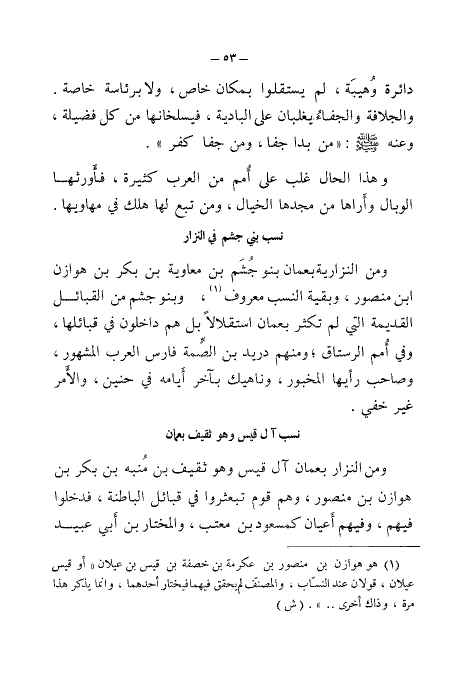 — ٥٣ —
دائرة وُهيبَة ، لم يستقلوا بمكان خاص ، ولا برئاسة خاصة .
والجلافة والجفاءُ يغلبان على البادية ، فيسلخانها من كل فضيلة ،
وعنه ﷺ : « من بدا جفا ، ومن جفا كفر » .
و هذا الحال غلب على أُمم من العرب كثيرة ، فأَورثهـا
الوبال وأَراها من مجدها الخيال ، ومن تبع لها هلك في مهاويها .
نسب بني جشم في النزار
ومن النزارية بعمان بنو جُشَم بن معاوية بن بكر بن هوازن
ابن منصور ، وبقية النسب معروف (١) ، وبنو جشم من القبائـل
القديمة التي لم تكثر بعمان استقلالاً بل هم داخلون في قبائلها ،
وفي أُمم الرستاق ؛ ومنهم دريد بن الصِّمة فارس العرب المشهور ،
وصاحب رأيها المخبور ، وناهيك بآخر أيامه في حنين ، والأَمر
غير خفي .
نسب آل قيس وهو ثقيف بعمان
ومن النزار بعمان آل قيس وهو ثقيف بن مُنبه بن بكر بن
هوازن بن منصور ، وهم قوم تبعثروا في قبائل الباطنة ، فدخلوا
فيهم ، وفيهم أَعيان كمسعود بن معتب ، والمختار بن أَبي عبيـد
(١) هو هوازن بن منصور بن عكرمة بن خصفة بن قيس بن عيلان « أو قيس
عيلان ، قولان عند النسّاب ، والمصنّف لم يحقق فيهما فيختار أحدهما ، وانما يذكر هذا
مرة ، وذاك أخرى .. » . ( ش )